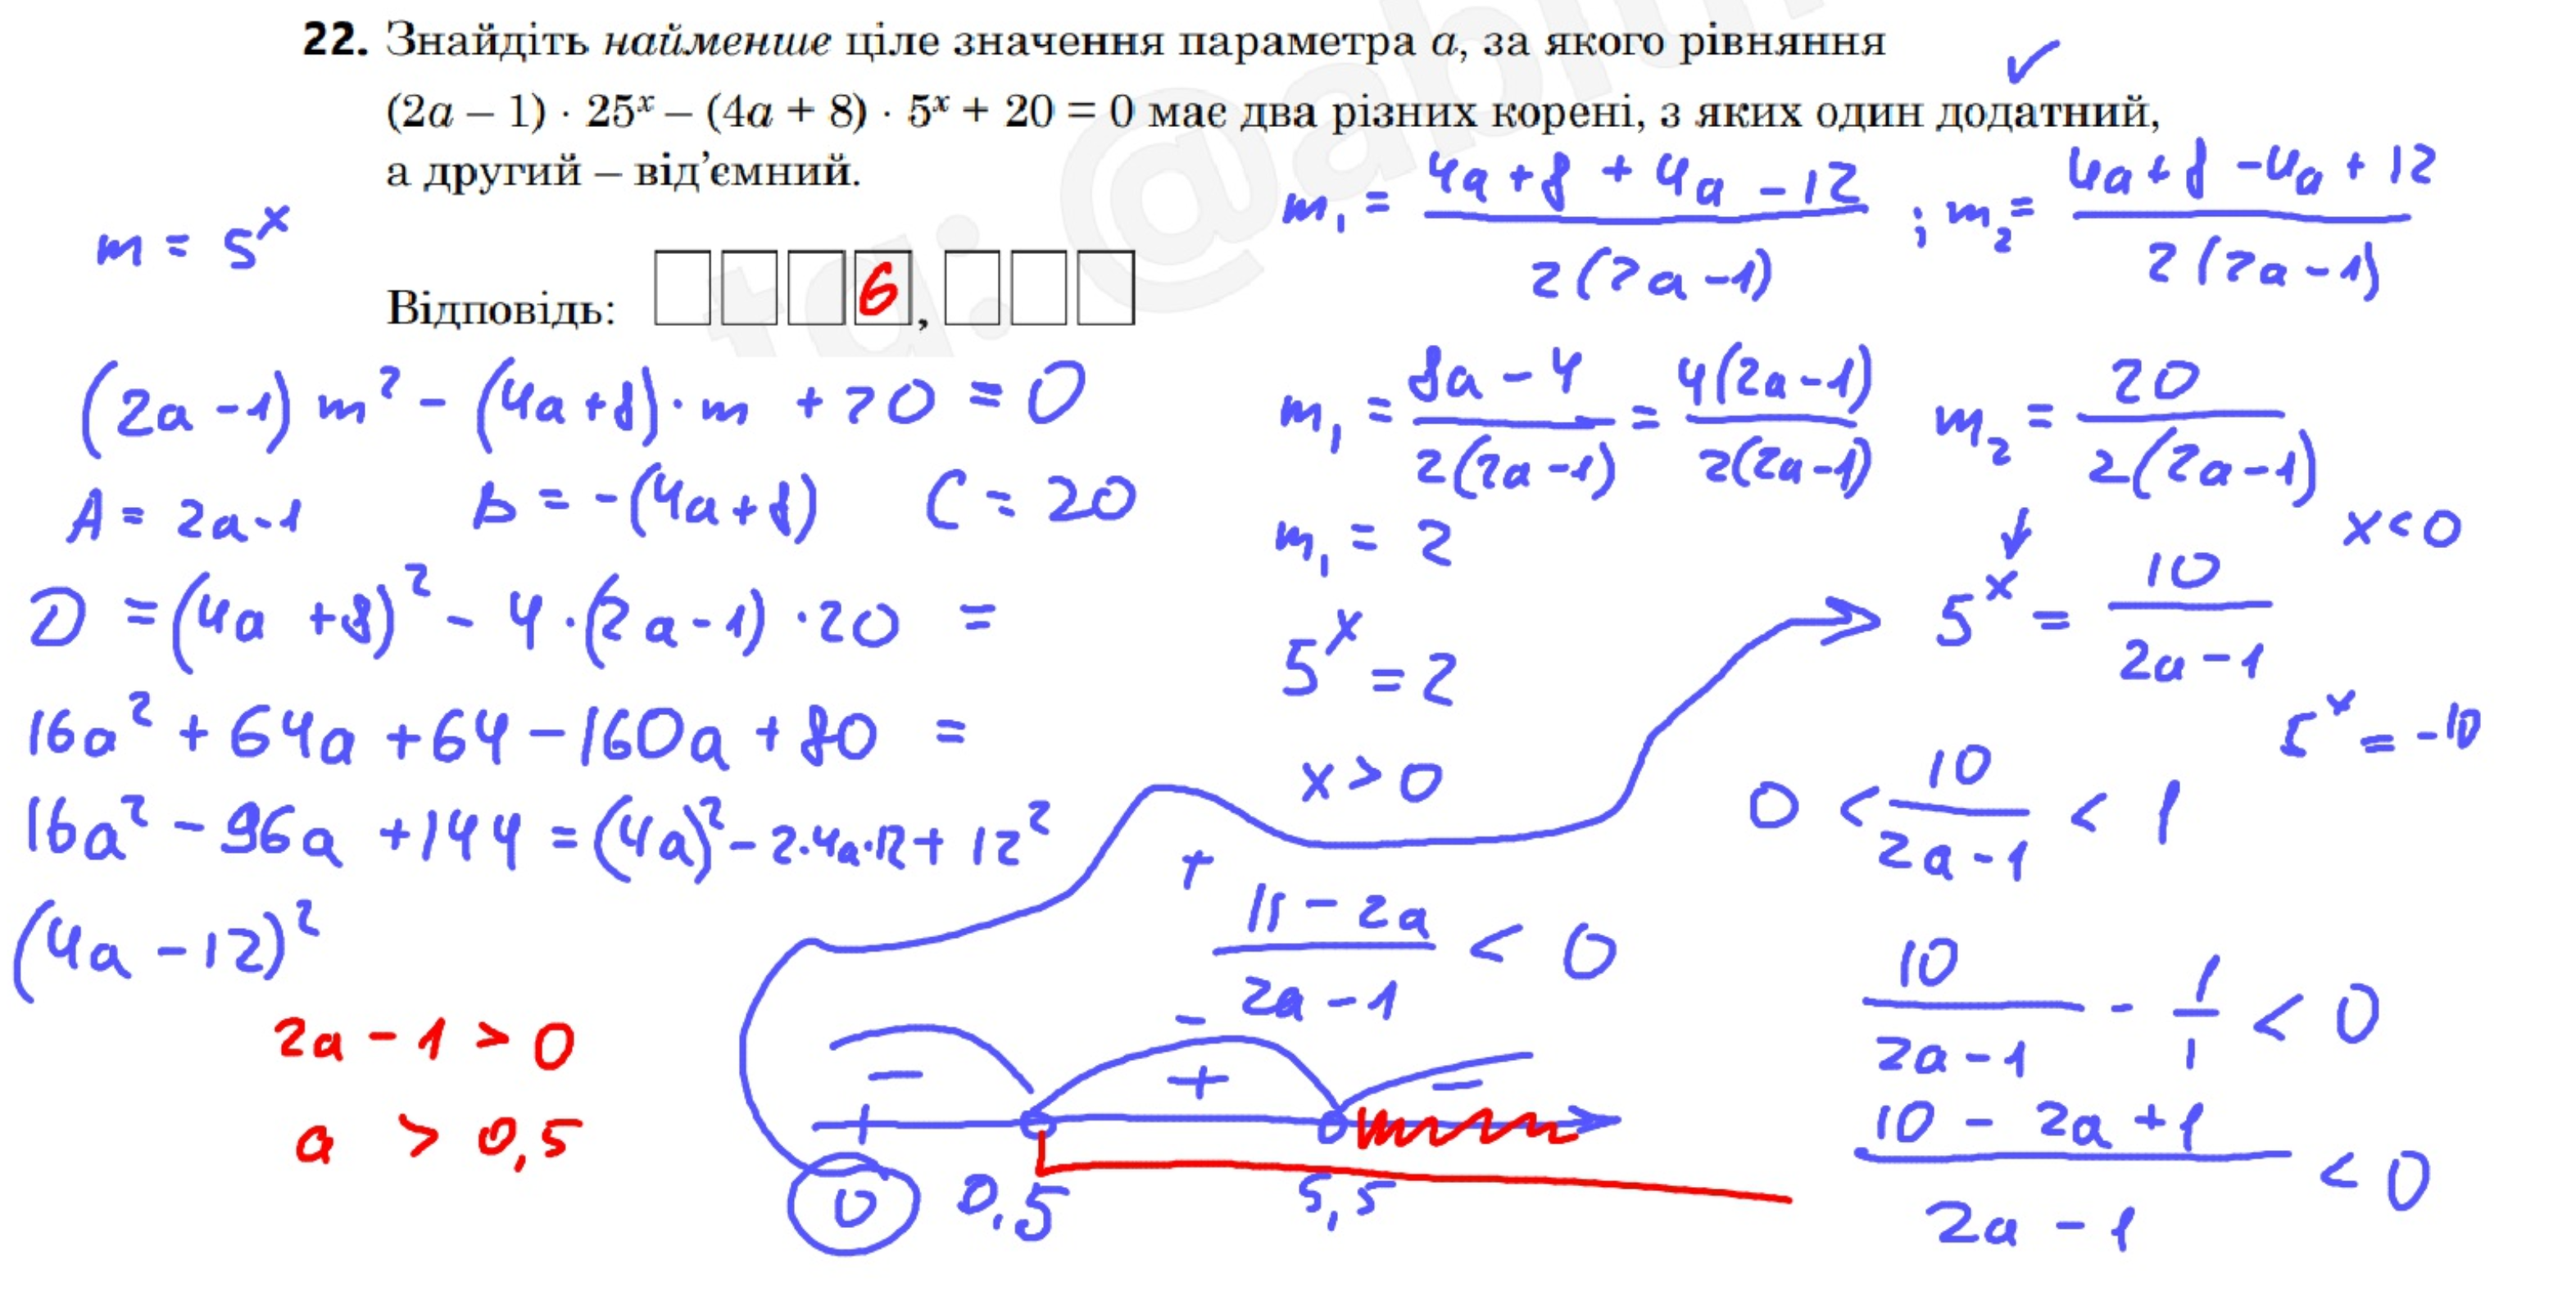 22. Знайдіть найменше ціле значення параметра a, за якого рівняння
(2a – 1) · 25ˣ – (4a + 8) · 5ˣ + 20 = 0 має два різних корені, з яких один додатний,
а другий – від'ємний.
m = 5ˣ
Відповідь: 6,
(2a - 1) m² - (4a + 8) · m + 20 = 0
A = 2a - 1 B = -(4a + 8) C = 20
D = (4a + 8)² - 4 · (2a - 1) · 20 =
16a² + 64a + 64 - 160a + 80 =
16a² - 96a + 144 = (4a)² - 2·4a·12 + 12²
(4a - 12)²
2a - 1 > 0
a > 0,5
m₁ = (4a + 8 + 4a - 12) / 2(2a - 1) ; m₂ = (4a + 8 - 4a + 12) / 2(2a - 1)
m₁ = (8a - 4) / 2(2a - 1) = 4(2a - 1) / 2(2a - 1) m₂ = 20 / 2(2a - 1)
m₁ = 2
x < 0
5ˣ = 2
5ˣ = 10 / (2a - 1)
5ˣ = -10
x > 0
0 < 10 / (2a - 1) < 1
+
(11 - 2a) / (2a - 1) < 0
10 / (2a - 1) - 1/1 < 0
(10 - 2a + 1) / (2a - 1) < 0
-
- + -
0 0,5 5,5
tg: @abit